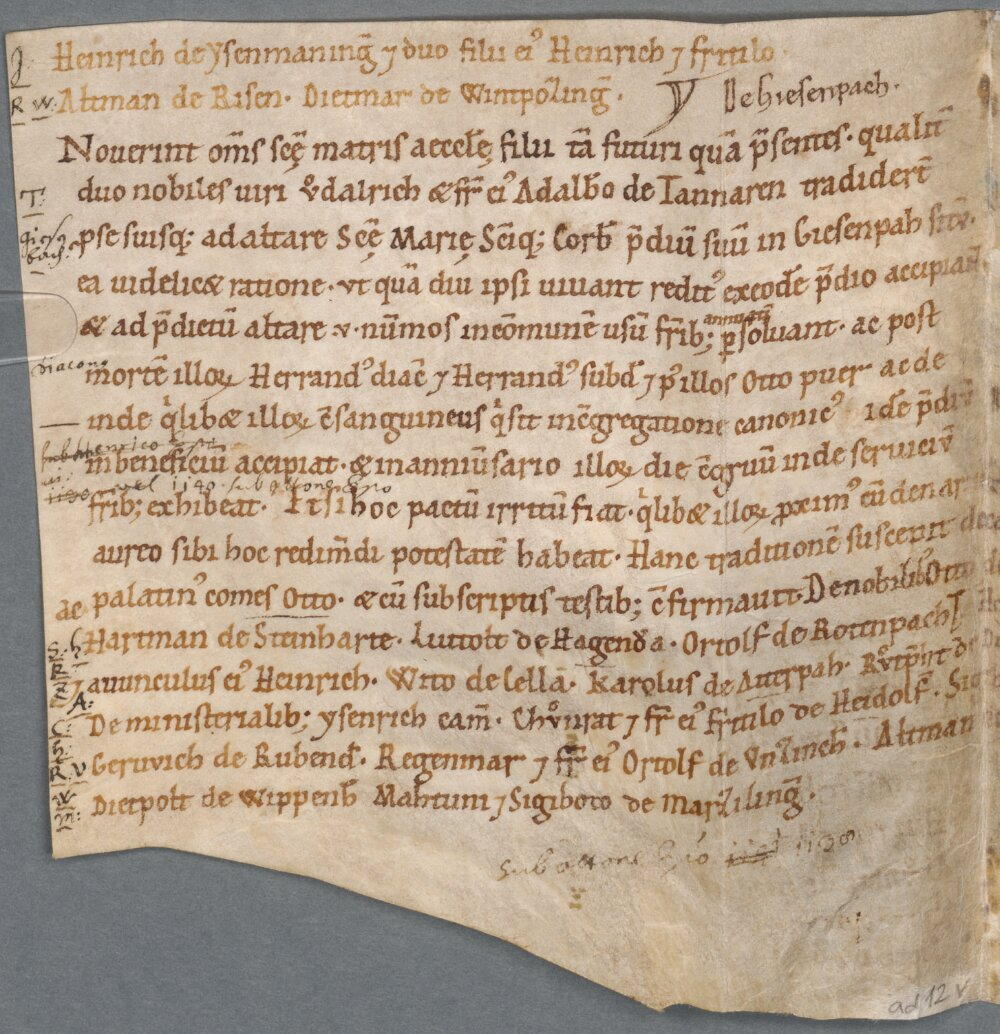 Heinrich de Ysenmaning̅ ⁊ duo filii ei᾽ Heinrich ⁊ fr̅itilo
R W. Altman de Risen. Dietmar de Wintpoʒling̅.
De hiesenpach.
Nouerint om̅s sc̅ę matris aeccl̅ę filii ta̅ futuri qua̅ p̅sentes. qualit̅
T. duo nobiles uiri vͦdalrich & fr̅ ei᾽ Adalb̅o de Tannaren tradider̅t
p se suisq; ad altare Sc̅ę Marię Sc̅iq; Corb̅ p̅diu̅ suu̅ in Giesenpah situ̅.
ea uidelic& ratione. vt qua̅ diu ipsi uiuant reddit᾽ ex eode̅ p̅dio accipiant
& ad p̅dictu̅ altare v. nu̅mos in co̅mune̅ usu̅ fr̅ib; annuati̅ p̱soluant. ac post
diacono morte̅ illoꝝ Herrand᾽ diac̅ ⁊ Herrand᾽ subd̅ ⁊ p᾽ illos Otto puer ac de
inde q̓lib& illoꝝ c̅sanguineus q̓ sit in c̅gregatione canonic᾽ ide̅ p̅diu̅
in beneficiu̅ accipiat. & in anniu̅sario illoꝝ die c̅gruu̅ inde seruiciu̅
fr̅ib; exhibeat. Et si hoc pactu̅ irritu̅ fiat. q̓lib& illoꝝ p̱xim᾽ cu̅ denario
aureo sibi hoc redim̅di potestate̅ habeat. Hanc traditione̅ suscepit
palatin᾽ comes Otto. & cu̅ subscriptis testib; c̅firmauit. De nobilib᾽ Otto de
Hartman de Steinharte. Liutolt de Hagenoͮa. Ortolf de Rotinpach
auunculus ei᾽ Heinrich. Wito de Cella̅. Karolus de Auerpah. Rvͦtp̅rt de
De ministerialib; ysenrich cam̅. Chvͦnrat ⁊ fr̅ ei᾽ fr̅itilo de Heidolf̅.
Geruvich de Rubend̅. Regenmar ⁊ fr̅ ei᾽ Ortolf de Vnʒinch̅. Altman
Dietpolt de Wippenh̅ Mahtuni ⁊ Sigiboto de Marʒiling̅.
sub ottone
ad 12 v